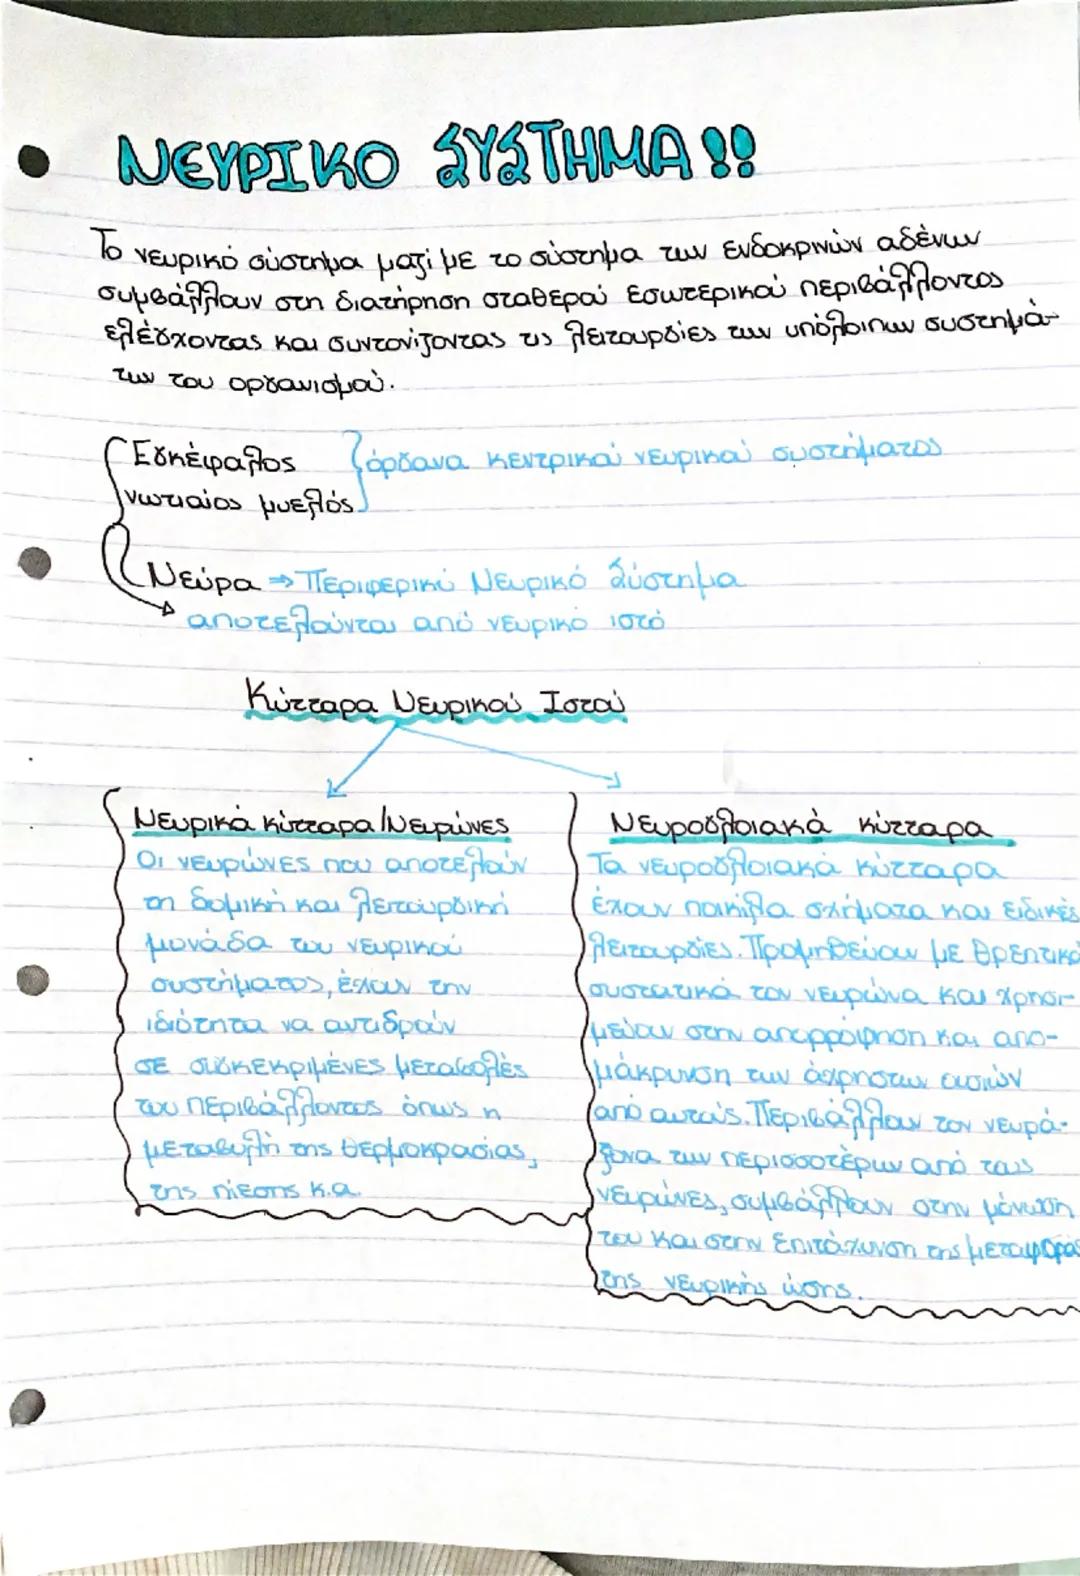 ΝΕΥΡΙΚΟ ΣΥΣΤΗΜΑ!!
Το νευρικό σύστημα μαζί με το σύστημα των ενδοκρινών αδένων
συμβάλλουν στη διατήρηση σταθερού εσωτερικού περιβάλλοντος
ελέγχοντας και συντονίζοντας τις λειτουργίες των υπόλοιπων συστημά-
των του οργανισμού.
Εγκέφαλος
νωτιαίος μυελός
όργανα κεντρικού νευρικού συστήματος
Νεύρα ⇒ Περιφερικό Νευρικό Σύστημα
αποτελούνται από νευρικό ιστό
Κύτταρα Νευρικού Ιστού
Νευρικά κύτταρα/Νευρώνες
Οι νευρώνες που αποτελούν
τη δομική και λειτουργική
μονάδα του νευρικού
συστήματος, έχουν την
ιδιότητα να αντιδρούν
σε συγκεκριμένες μεταβολές
του περιβάλλοντος όπως η
μεταβολή της θερμοκρασίας,
της πίεσης κ.α.
Νευρογλοιακά κύτταρα
Τα νευρογλοιακά κύτταρα
έχουν ποικίλα σχήματα και ειδικές
λειτουργίες. Προμηθεύουν με θρεπτικά
συστατικά τον νευρώνα και χρησι-
μεύουν στην απορρόφηση και απο-
μάκρυνση των άχρηστων ουσιών
από αυτούς. Περιβάλλουν τον νευρά-
ξονα των περισσοτέρων από τους
νευρώνες, συμβάλλουν στην μόνωση
του και στην επιτάχυνση της μεταφοράς
της νευρικής ώσης.